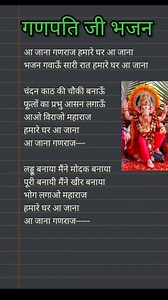 गणपति जी भजन
आ जाना गणराज हमारे घर आ जाना
भजन गवाऊँ सारी रात हमारे घर आ जाना
चंदन काठ की चौकी बनाऊँ
फूलों का प्रभु आसन लगाऊँ
आओ विराजो महाराज
हमारे घर आ जाना
आ जाना गणराज----
लड्डू बनाया मैंने मोदक बनाया
पूरी बनायी मैंने खीर बनाया
भोग लगाओ महाराज
हमारे घर आ जाना
आ जाना गणराज------